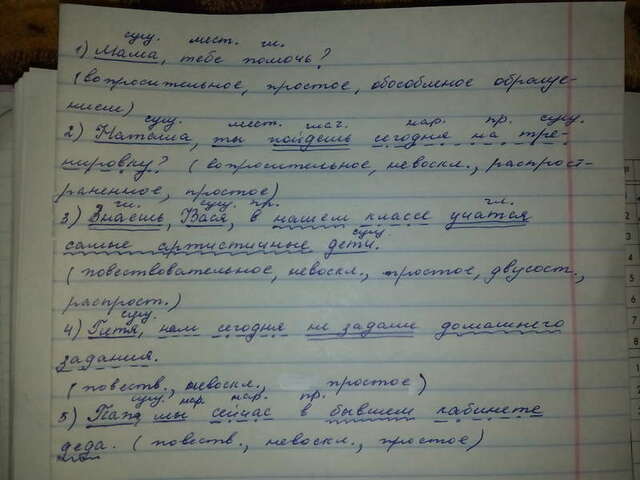 сущ. мест. гл.
1) Мама, тебе помочь?
(вопросительное, простое, обособленое обраще-
нием)
сущ. мест. глаг. нар. пр. сущ.
2) Наташа, ты пойдешь сегодня на тре-
нировку? (вопросительное, невоскл., распрост-
раненное, простое)
гл. сущ. пр. гл.
3) Знаешь, Вася, в нашем классе учатся
сущ.
самые артистичные дети.
(повествовательное, невоскл., простое, двусост.,
распрост.)
сущ.
4) Петя, нам сегодня не задали домашнего
задания.
(повеств., невоскл., простое)
сущ. нар. нар. пр.
5) Папа мы сейчас в бывшем кабинете
деда. (повеств., невоскл., простое)